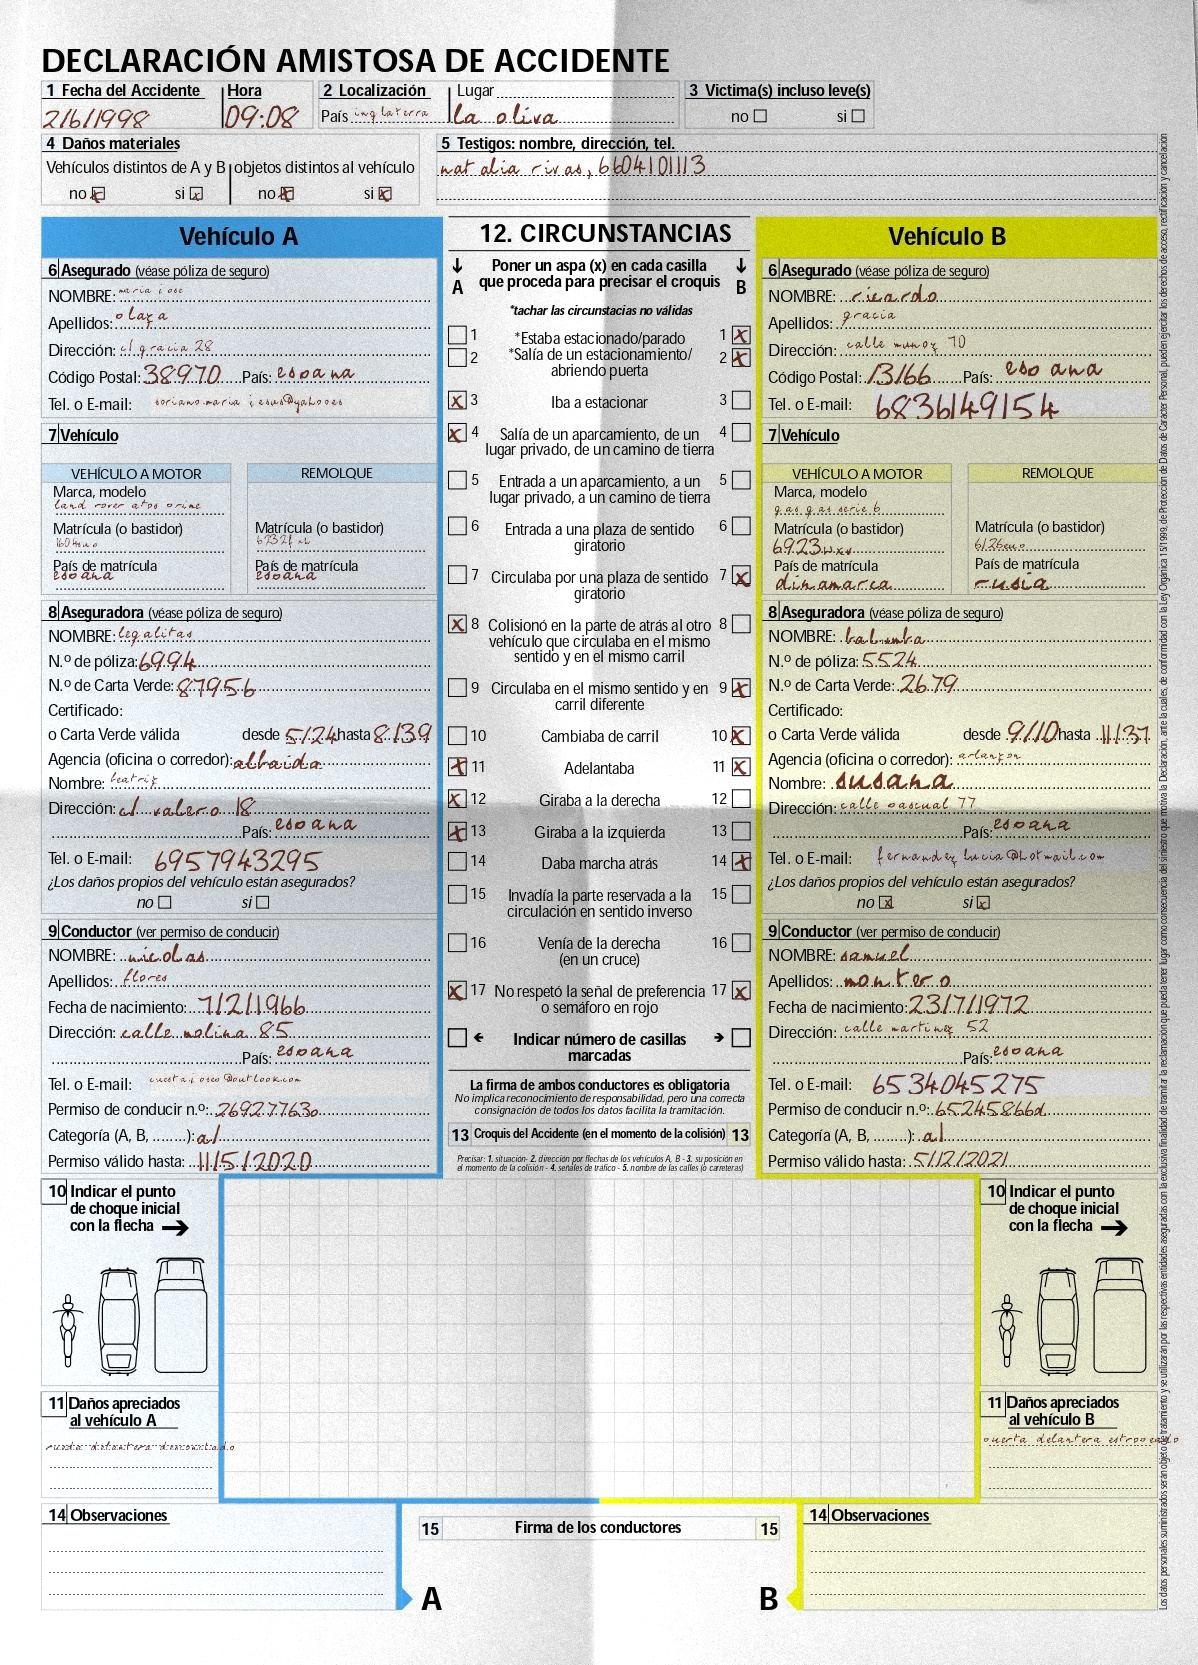 DECLARACIÓN AMISTOSA DE ACCIDENTE
1 Fecha del Accidente
2/6/1998
Hora
09:08
2 Localización
País inglaterra
Lugar
la oliva
3 Victima(s) incluso leve(s)
no si
4 Daños materiales
Vehículos distintos de A y B
no x si x
objetos distintos al vehículo
no x si x
5 Testigos: nombre, dirección, tel.
natalia rivas, 6604101113
Vehículo A
6 Asegurado (véase póliza de seguro)
NOMBRE: maria jose
Apellidos: olaya
Dirección: c/ gracia 28
Código Postal: 38970 País: espana
Tel. o E-mail: sorianomaria jesus@yahooes
7 Vehículo
VEHÍCULO A MOTOR
Marca, modelo
land rover atos prime
Matrícula (o bastidor)
País de matrícula
espana
REMOLQUE
Matrícula (o bastidor)
País de matrícula
espana
8 Aseguradora (véase póliza de seguro)
NOMBRE: legalitas
N.º de póliza: 6994
N.º de Carta Verde: 87956
Certificado:
o Carta Verde válida desde 5/24 hasta 8/39
Agencia (oficina o corredor): albaida
Nombre: beatriz
Dirección: c/ valero 18
País: espana
Tel. o E-mail: 6957943295
¿Los daños propios del vehículo están asegurados?
no si
9 Conductor (ver permiso de conducir)
NOMBRE: nicolas
Apellidos: flores
Fecha de nacimiento: 7/2/1966
Dirección: calle molina 85
País: espana
Tel. o E-mail: cuestajoseo@outlook.com
Permiso de conducir n.º: 26927763o
Categoría (A, B, ........): a1
Permiso válido hasta: 11/5/2020
10 Indicar el punto
de choque inicial
con la flecha →
11 Daños apreciados
al vehículo A
rueda delantera desmontado
14 Observaciones
12. CIRCUNSTANCIAS
↓ A
Poner un aspa (x) en cada casilla
que proceda para precisar el croquis
↓ B
*tachar las circunstacias no válidas
1 *Estaba estacionado/parado 1 x
2 *Salía de un estacionamiento/ 2 x
abriendo puerta
x 3 Iba a estacionar 3
x 4 Salía de un aparcamiento, de un 4
lugar privado, de un camino de tierra
5 Entrada a un aparcamiento, a un 5
lugar privado, a un camino de tierra
6 Entrada a una plaza de sentido 6
giratorio
7 Circulaba por una plaza de sentido 7 x
giratorio
x 8 Colisionó en la parte de atrás al otro 8
vehículo que circulaba en el mismo
sentido y en el mismo carril
9 Circulaba en el mismo sentido y en 9 x
carril diferente
10 Cambiaba de carril 10 x
x 11 Adelantaba 11 x
x 12 Giraba a la derecha 12
x 13 Giraba a la izquierda 13
14 Daba marcha atrás 14 x
15 Invadía la parte reservada a la 15
circulación en sentido inverso
16 Venía de la derecha 16
(en un cruce)
x 17 No respetó la señal de preferencia 17 x
o semáforo en rojo
← Indicar número de casillas →
marcadas
La firma de ambos conductores es obligatoria
No implica reconocimiento de responsabilidad, pero una correcta
consignación de todos los datos facilita la tramitación.
13 Croquis del Accidente (en el momento de la colisión) 13
Precisar: 1. situación- 2. dirección por flechas de los vehículos A, B - 3. su posición en
el momento de la colisión - 4. señales de tráfico - 5. nombre de las calles (o carreteras)
15 Firma de los conductores 15
A B
Vehículo B
6 Asegurado (véase póliza de seguro)
NOMBRE: ricardo
Apellidos: gracia
Dirección: calle munoz 10
Código Postal: 13166 País: espana
Tel. o E-mail: 6836149154
7 Vehículo
VEHÍCULO A MOTOR
Marca, modelo
gas gas serie 6
Matrícula (o bastidor)
País de matrícula
dinamarca
REMOLQUE
Matrícula (o bastidor)
País de matrícula
rusia
8 Aseguradora (véase póliza de seguro)
NOMBRE: balumba
N.º de póliza: 5524
N.º de Carta Verde: 2679
Certificado:
o Carta Verde válida desde 9/10 hasta 11/37
Agencia (oficina o corredor): arlanzon
Nombre: susana
Dirección: calle pascual 77
País: espana
Tel. o E-mail: fernandez lucia@hotmail.com
¿Los daños propios del vehículo están asegurados?
no x si x
9 Conductor (ver permiso de conducir)
NOMBRE: samuel
Apellidos: montero
Fecha de nacimiento: 23/7/1972
Dirección: calle martinez 52
País: espana
Tel. o E-mail: 6534045275
Permiso de conducir n.º: 65245866d
Categoría (A, B, ........): a1
Permiso válido hasta: 5/12/2021
10 Indicar el punto
de choque inicial
con la flecha →
11 Daños apreciados
al vehículo B
puerta delantera estropeado
14 Observaciones
Los datos personales suministrados serán objeto de tratamiento y se utilizarán por las respectivas entidades aseguradas con la exclusiva finalidad de tramitar la reclamación que pueda tener lugar como consecuencia del siniestro que motiva la Declaración, ante la cuales, de conformidad con la Ley Orgánica 15/1999, de Protección de Datos de Carácter Personal, pueden ejercitar los derechos de acceso, rectificación y cancelación